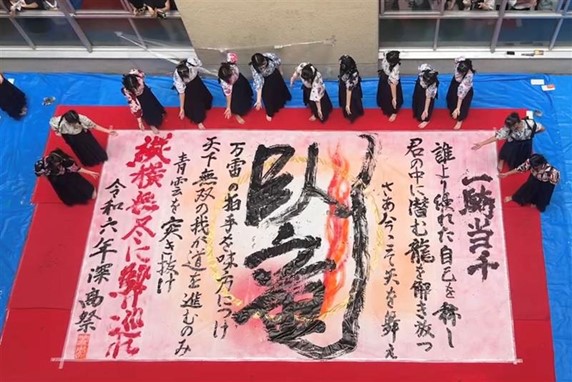 一騎当千
誰より れた自己を 称し
君の中に潜む龍を解き放つ
さあ今こそ天を舞え
臥竜
万雷の拍手を味方につけ
天下無双の我が道を進むのみ
青雲を突き抜け
縦横無尽に
令和六年深高祭